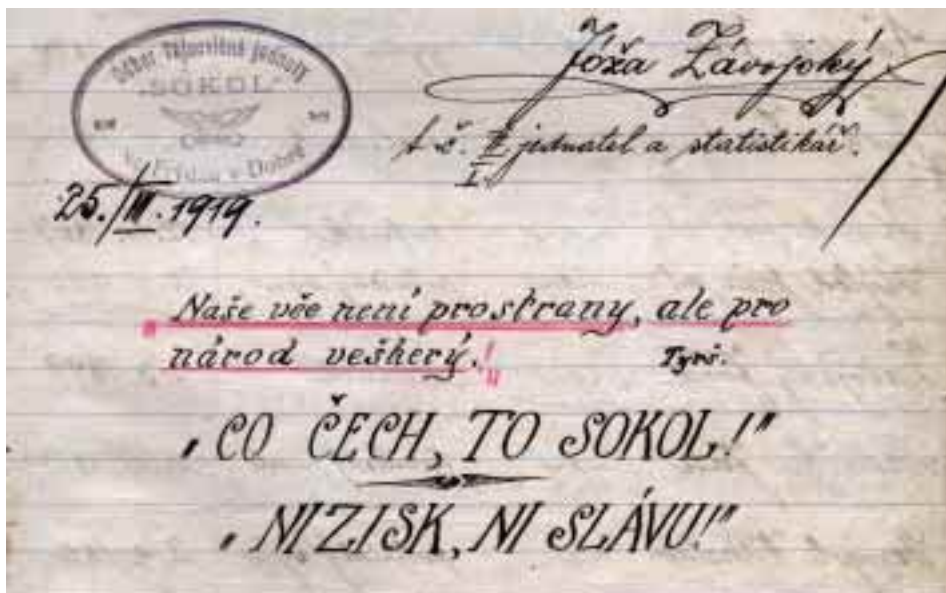 Odbor Tělocvičné jednoty
"SOKOL"
v Dobré
Jóža Závojský
t. č. II jednatel a statistikář.
I.
25./III. 1919.
"Naše vče není pro strany, ale pro
národ veškerý.!"
Tyrš.
"CO ČECH, TO SOKOL!"
"NI ZISK, NI SLÁVU!"